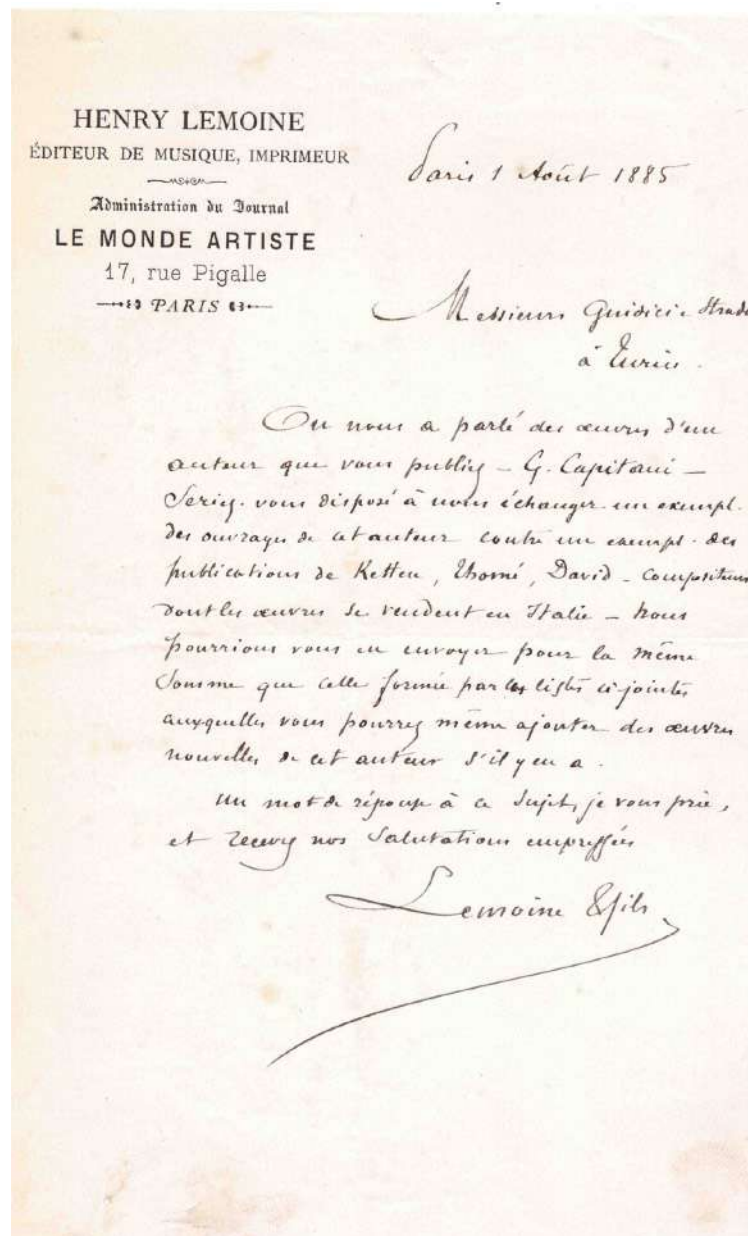 HENRY LEMOINE
ÉDITEUR DE MUSIQUE, IMPRIMEUR
Administration du Journal
LE MONDE ARTISTE
17, rue Pigalle
PARIS
Paris 1 Août 1885
Messieurs Guidici e Strada
à Turin.
On nous a parlé des œuvres d'un
auteur que vous publiez – G. Capitani –
Seriez-vous disposé à nous échanger un exempl.
des ouvrages de cet auteur contre un exempl. des
publications de Ketten, Thomé, David – compositeurs
dont les œuvres se vendent en Italie – Nous
pourrions vous en envoyer pour la même
somme que celle formée par les listes ci-jointes
auxquelles vous pourrez même ajouter des œuvres
nouvelles de cet auteur s'il y en a.
Un mot de réponse à ce sujet, je vous prie,
et recevez nos salutations empressées
Lemoine & fils